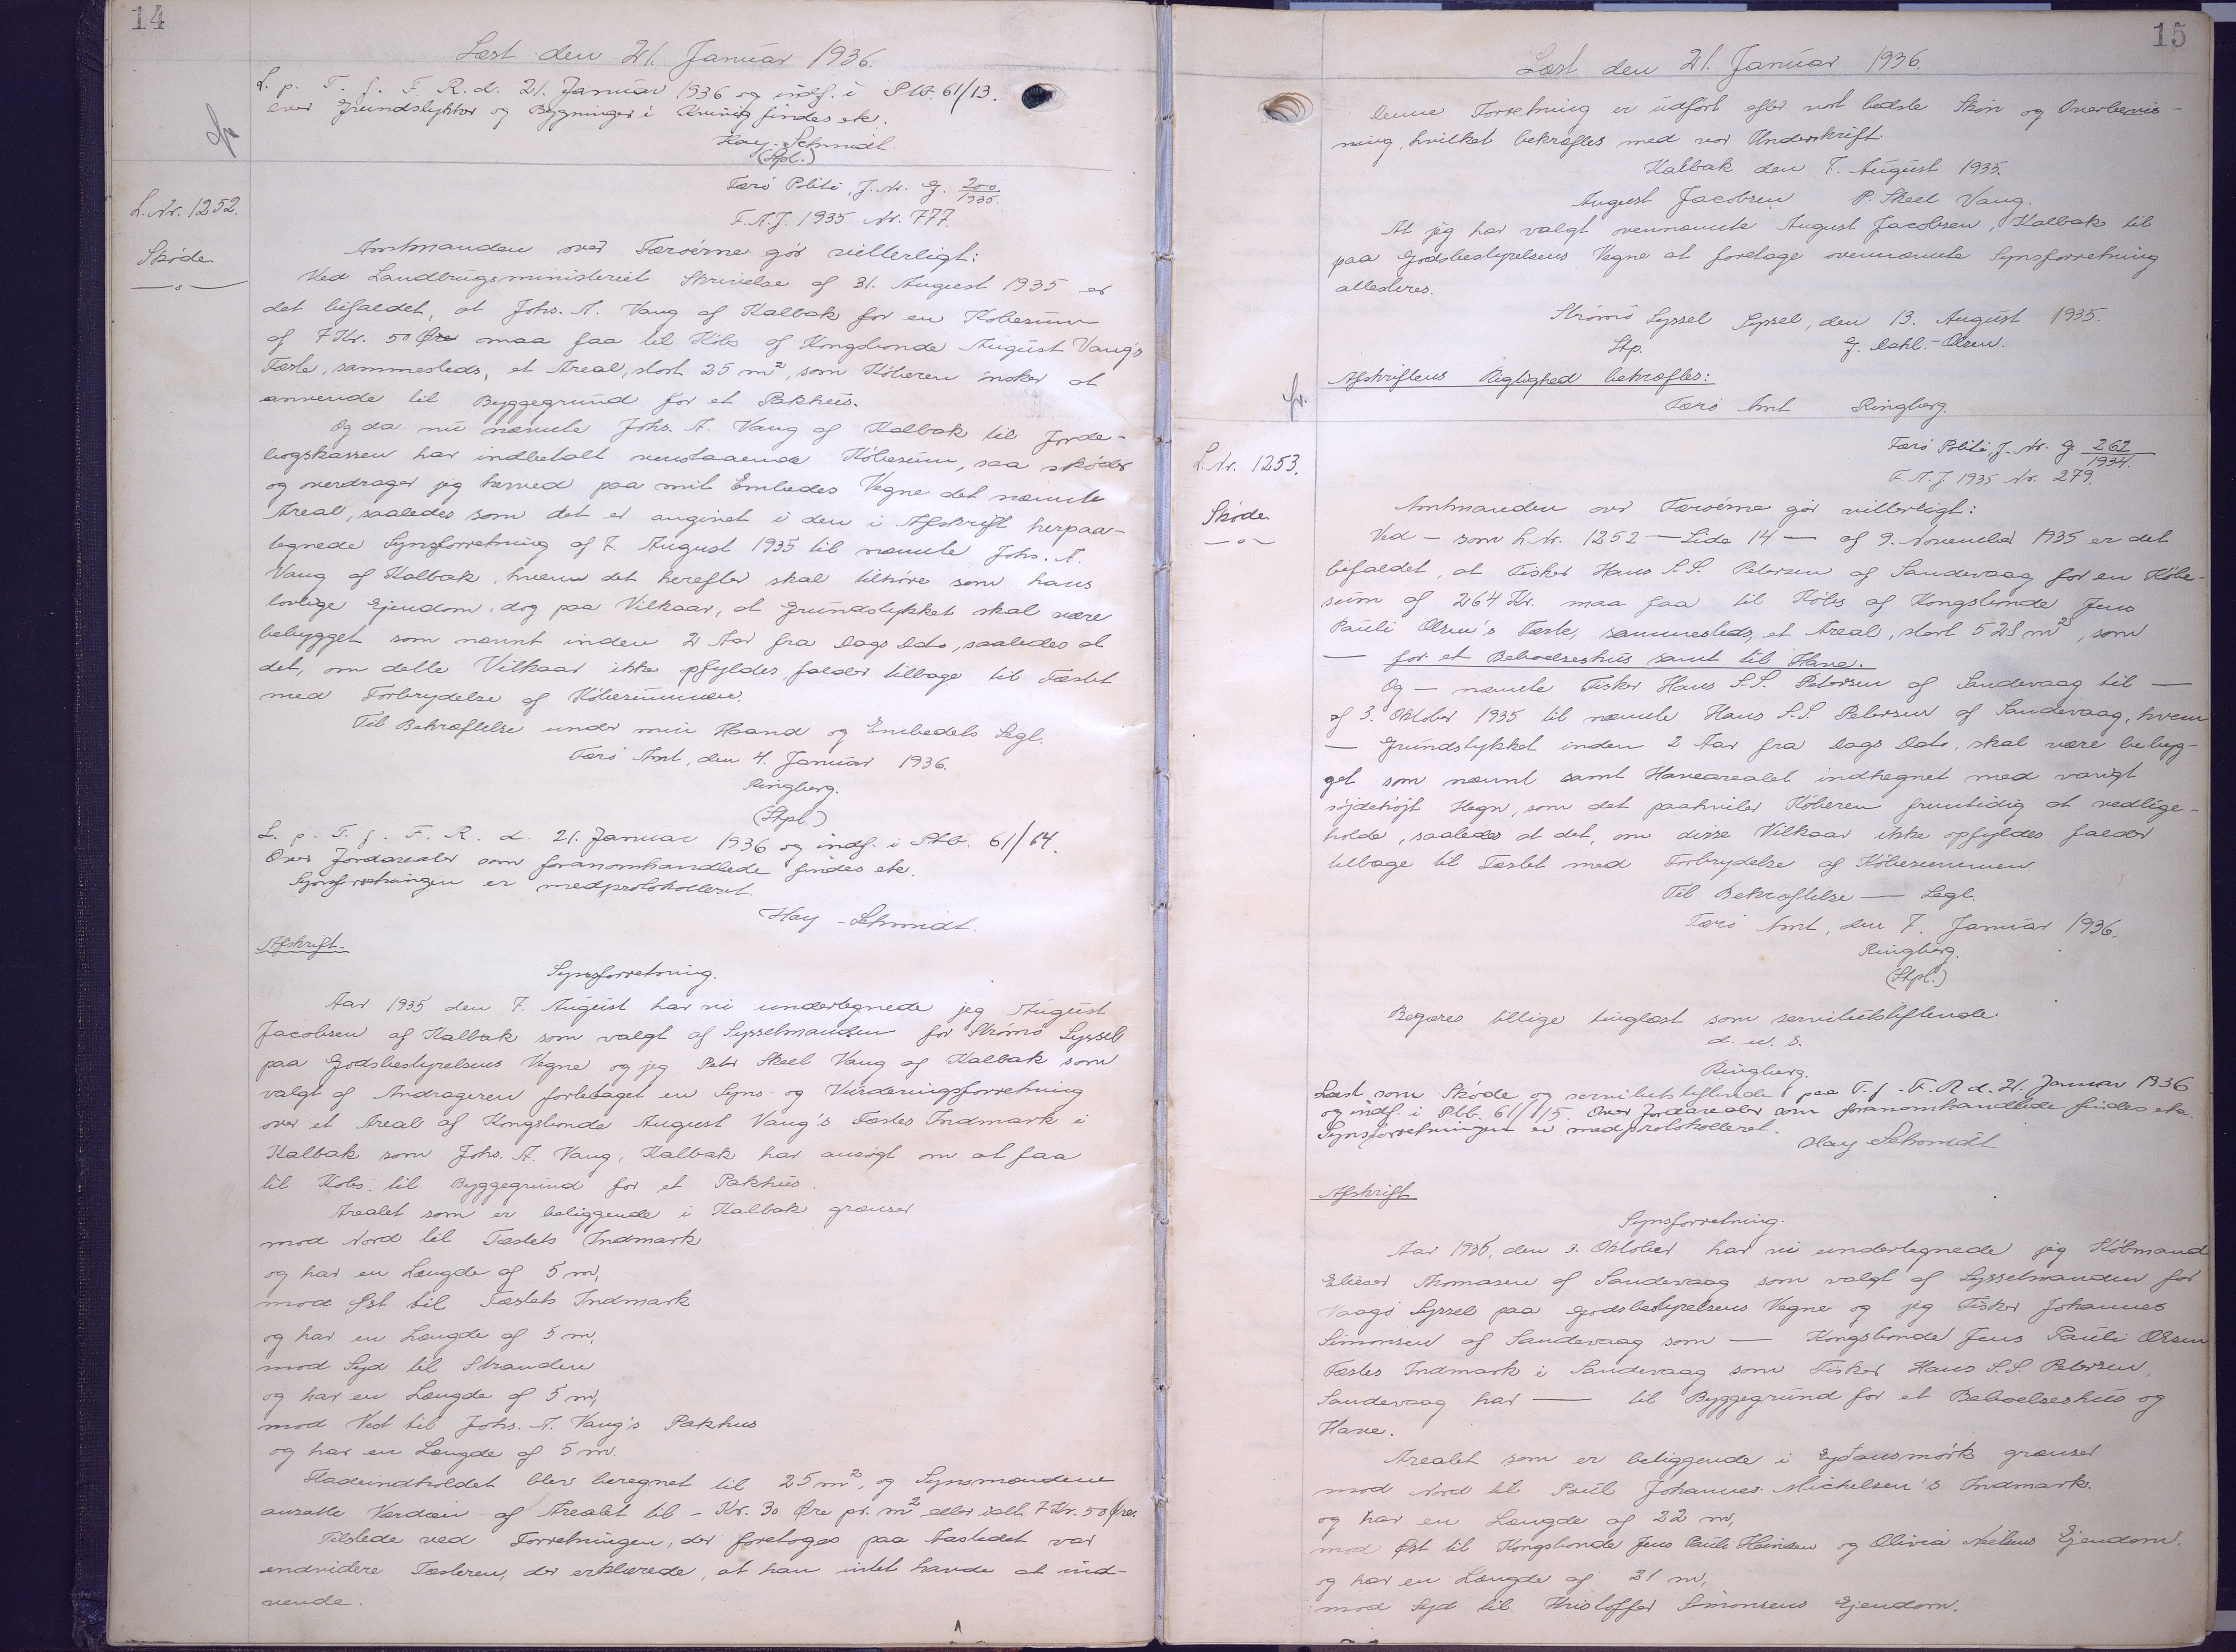 14
Læst den 21. Januar 1936.
L. p. T. f. F. R. d. 21. Januar 1936 og indf. i Ptb. 61/13.
Over Grundstykker og Bygninger i findes etc.
Hay-Schmidt.
(Stpl.)
L. Nr. 1252.
Skøde
Færø Politi, J. Nr. G. 200/1935.
F.A.J. 1935 Nr. 777.
Amtmanden over Færøerne gör vitterligt:
Ved Landbrugsministeriet Skrivelse af 31. August 1935 er
det bifaldet, at Johs. A. Vang af Kalbak for en Købesum
af 7 Kr. 50 Øre maa faa til Købs af Kongsbonde August Vang's
Fæste, sammesteds, et Areal, stort 25 m², som Køberen önsker at
anvende til Byggegrund for et Pakhus.
Og da nu nævnte Johs. A. Vang af Kalbak til Jorde-
bogskassen har indbetalt venstaaende Købesum, saa skøder
og overdrager jeg herved paa mit Embedes Vegne det nævnte
Areal, saaledes som det er angivet i den i Afskrift herpaa-
tegnede Synsforretning af 7. August 1935 til nævnte Johs. A.
Vang af Kalbak, hvem det herefter skal tilhöre som hans
lovlige Ejendom, dog paa Vilkaar, at Grundstykket skal være
bebygget som nævnt inden 2 Aar fra Dags Dato, saaledes at
det, om dette Vilkaar ikke opfyldes, falder tilbage til Fæstet
med Forbrydelse af Købesummen.
Til Bekræftelse under min Haand og Embedets Segl.
Færö Amt, den 4. Januar 1936.
Ringberg.
(Stpl.)
L. p. T. f. F. R. d. 21. Januar 1936 og indf. i Ptb. 61/14.
Over Jordarealer som foranomhandlede findes etc.
Synsforretningen er medprotokolleret.
Hay-Schmidt.
Afskrift.
Synsforretning.
Aar 1935 den 7. August har vi undertegnede jeg August
Jacobsen af Kalbak som valgt af Sysselmanden for Strömö Syssel
paa Godsbestyrelsens Vegne og jeg Peter Skeel Vang af Kalbak som
valgt af Andrageren foretaget en Syns- og Vurderingsforretning
over et Areal af Kongsbonde August Vang's Fæstes Indmark i
Kalbak som Johs. A. Vang, Kalbak har ansögt om at faa
til Købs til Byggegrund for et Pakhus.
Arealet som er beliggende i Kalbak grænser
mod Nord til Fæstets Indmark
og har en Længde af 5 m,
mod Øst til Fæstets Indmark
og har en Længde af 5 m,
mod Syd til Stranden
og har en Længde af 5 m,
mod Vest til Johs. A. Vang's Pakhus
og har en Længde af 5 m.
Fladeindholdet blev beregnet til 25 m², og Synsmændene
ansatte Værdien af Arealet til - Kr. 30 Øre pr. m² eller ialt 7 Kr. 50 Øre.
Tilstede ved Forretningen, der foretoges paa Aastedet var
endvidere Fæsteren, der erklærede, at han intet havde at ind-
vende.
15
Læst den 21. Januar 1936.
Denne Forretning er udført efter vort bedste Skön og Overbevis-
ning, hvilket bekræftes med vor Underskrift.
Kalbak den 7. August 1935.
August Jacobsen P. Skeel Vang.
At jeg har valgt ovennævnte August Jacobsen, Kalbak til
paa Godsbestyrelsens Vegne at foretage ovennævnte Synsforretning
attesteres.
Strömö Syssel Syssel, den 13. August 1935.
Stp. G. Dahl-Olsen.
Afskriftens Rigtighed bekræftes:
Færö Amt Ringberg.
L. Nr. 1253.
Skøde
Færö Politi, J. Nr. G 262/1934.
F.A.J 1935 Nr. 279.
Amtmanden over Færöerne gör vitterligt:
Ved — som L. Nr. 1252 — Side 14 — af 9. November 1935 er det
bifaldet, at Fisker Hans S.S. Petersen af Sandevaag for en Købe-
sum af 264 Kr. maa faa til Købs af Kongsbonde Jens
Pauli Olsen's Fæste, sammesteds, et Areal, stort 528 m², som
— for et Beboelseshus samt til Have.
Og — nævnte Fisker Hans S.S. Petersen af Sandevaag til —
af 3. Oktober 1935 til nævnte Hans S.S. Petersen af Sandevaag, hvem
— Grundstykket inden 2 Aar fra Dags Dato, skal være bebyg-
get som nævnt samt Havearealet indhegnet med varigt
söjdehöjt Hegn, som det paahviler Køberen fremtidig at vedlige-
holde, saaledes at det, om disse Vilkaar ikke opfyldes falder
tilbage til Fæstet med Forbrydelse af Købesummen.
Til Bekræftelse — Segl.
Færö Amt, den 7. Januar 1936.
Ringberg.
(Stpl.)
Begæres tillige tinglæst som servitutstiftende
d. u. s.
Ringberg.
Læst som Skøde og servitutstiftende paa T. f. F. R d. 21. Januar 1936
og indf. i Ptb. 61/15. Over Jordarealer som foranomhandlede findes etc.
Synsforretningen er medprotokolleret.
Hay Schmidt
Afskrift
Synsforretning.
Aar 1935, den 3. Oktober har vi undertegnede jeg Købmand
Elieser Thomasen af Sandevaag som valgt af Sysselmanden for
Vaagö Syssel paa Godsbestyrelsens Vegne og jeg Fisker Johannes
Simonsen af Sandevaag som — Kongsbonde Jens Pauli Olsen
Fæstes Indmark i Sandevaag som Fisker Hans S.S. Petersen,
Sandevaag har — til Byggegrund for et Beboelseshus og
Have.
Arealet som er beliggende i Eydansmörk grænser
mod Nord til Poul Johannes Michelsen's Indmark.
og har en Længde af 22 m,
mod Øst til Kongsbonde Jens Pauli Heinesen og Olivia Nielsens Ejendom.
og har en Længde af 21 m,
mod Syd til Kristoffer Simonsens Ejendom.